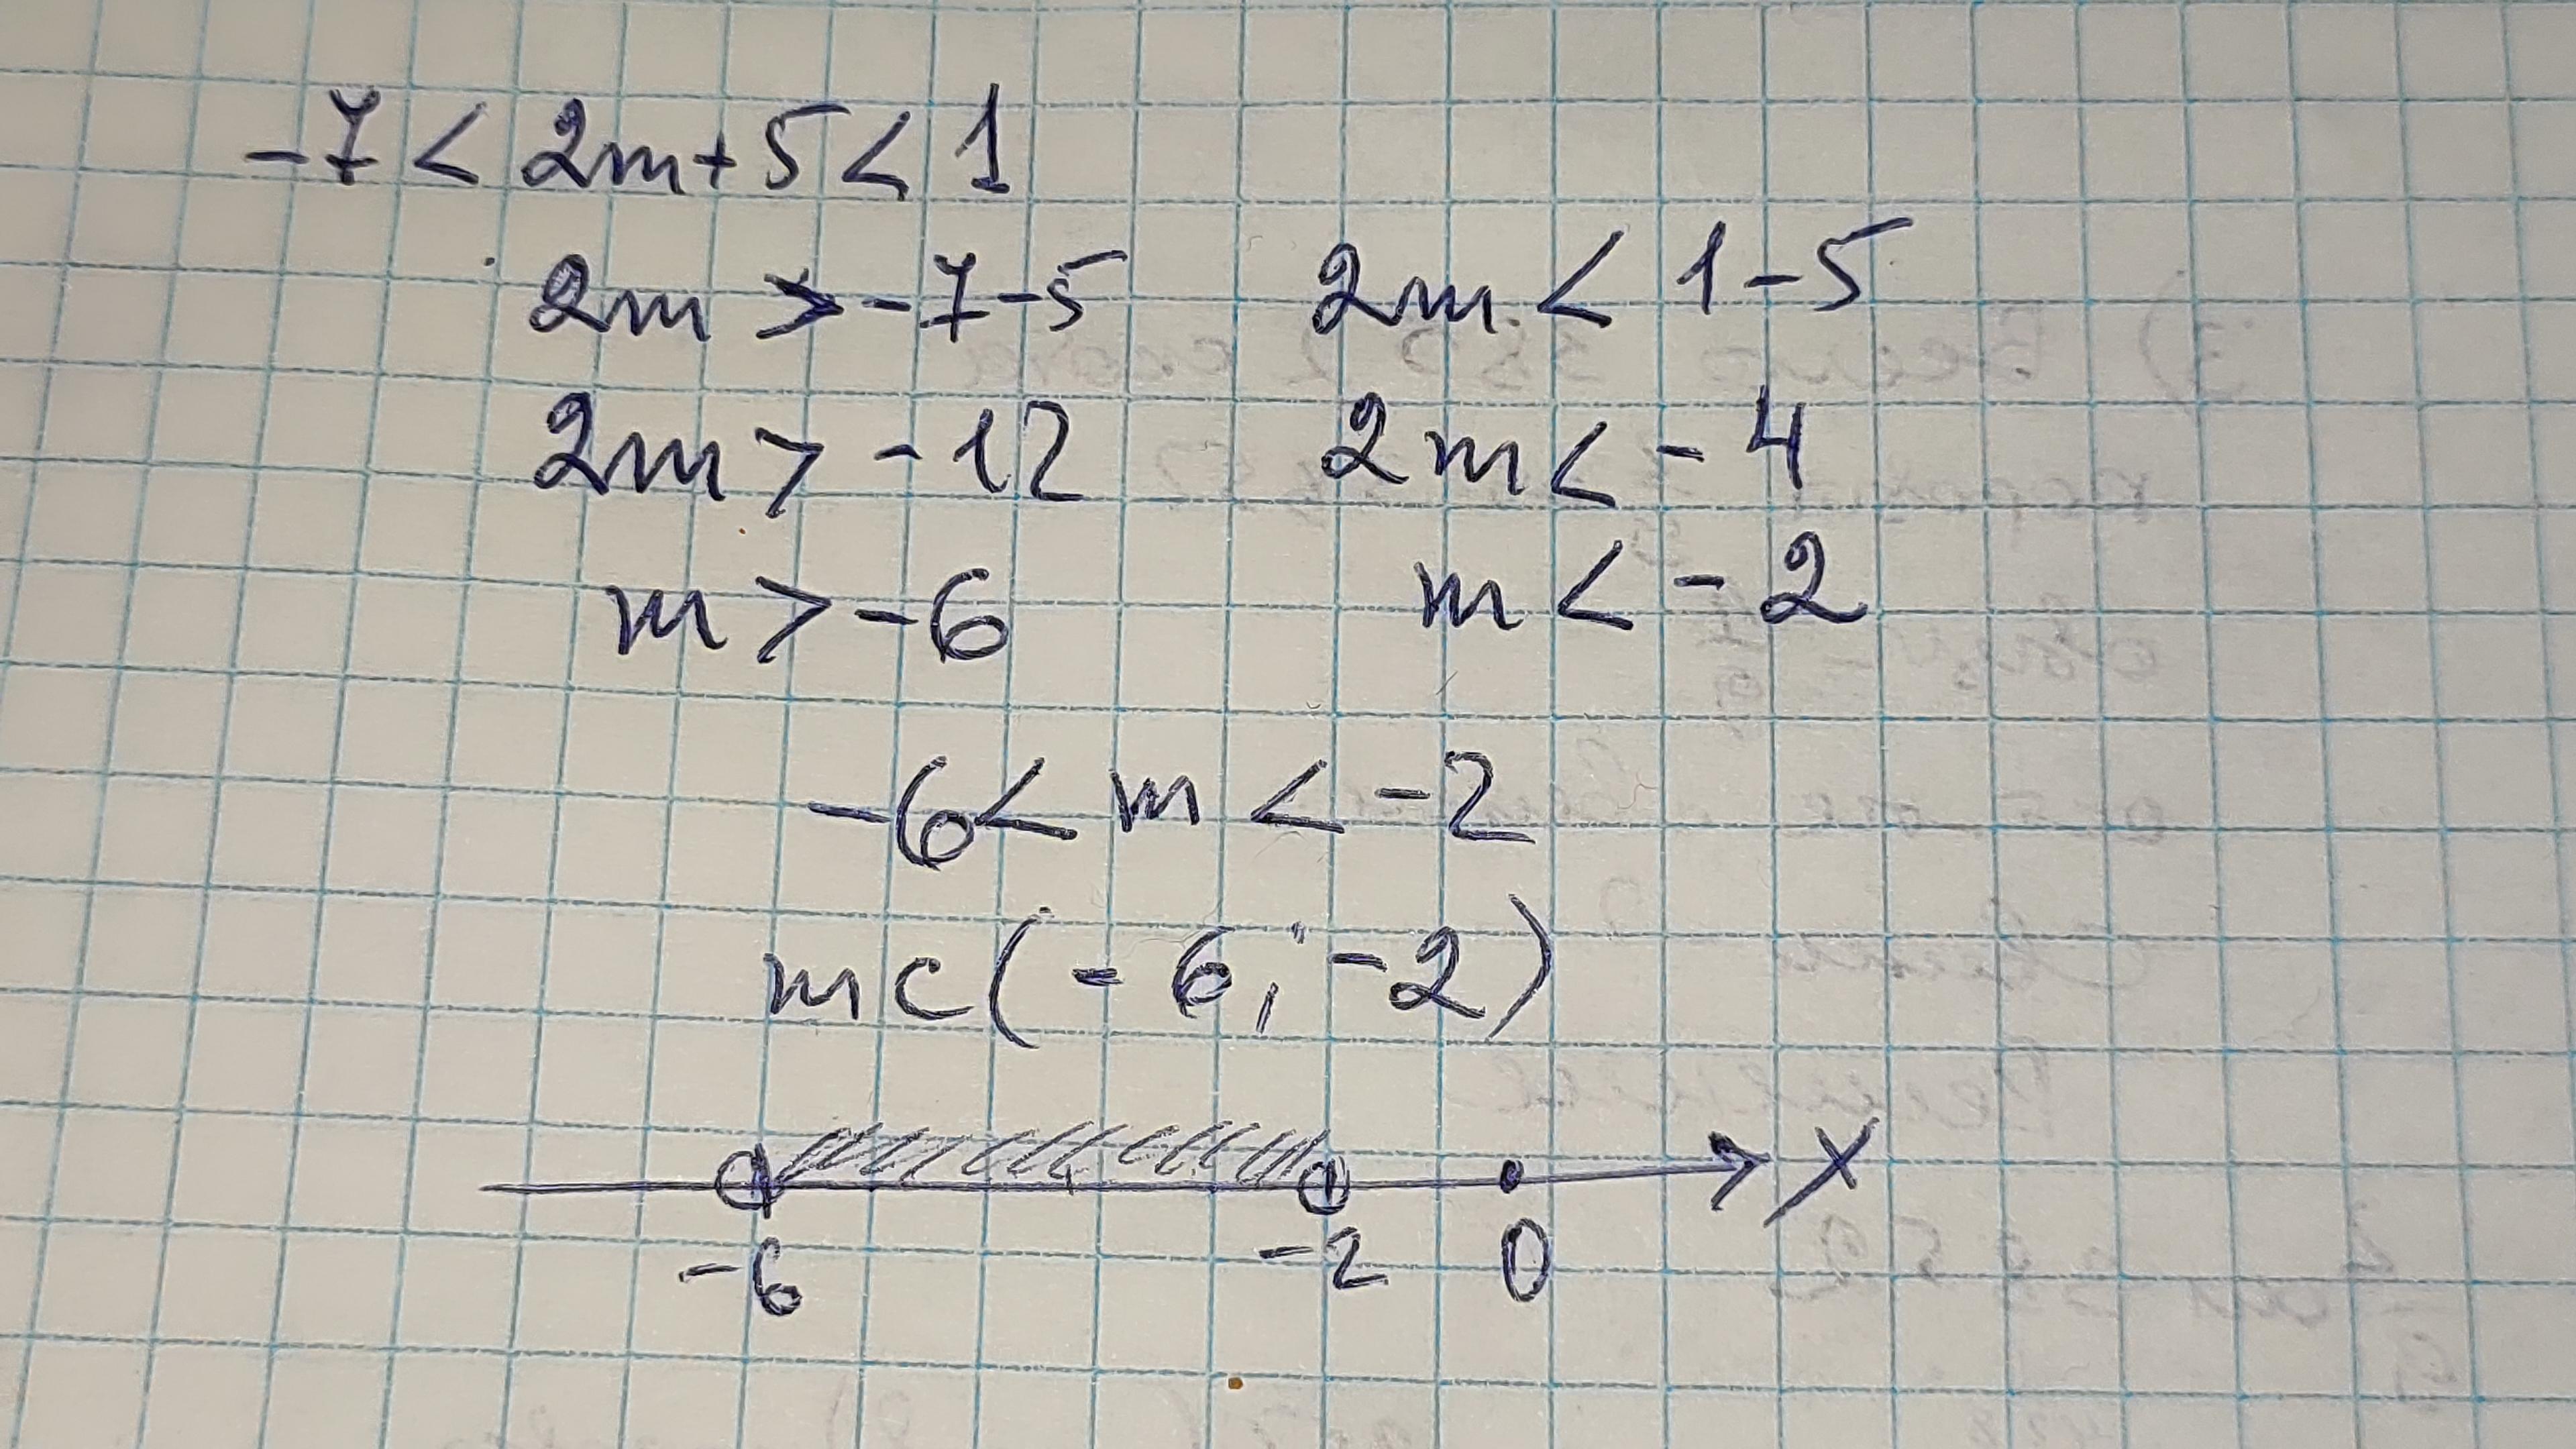 -7 < 2m+5 < 1
2m > -7-5 2m < 1-5
2m > -12 2m < -4
m > -6 m < -2
-6 < m < -2
m c (-6; -2)
X
-6 -2 0